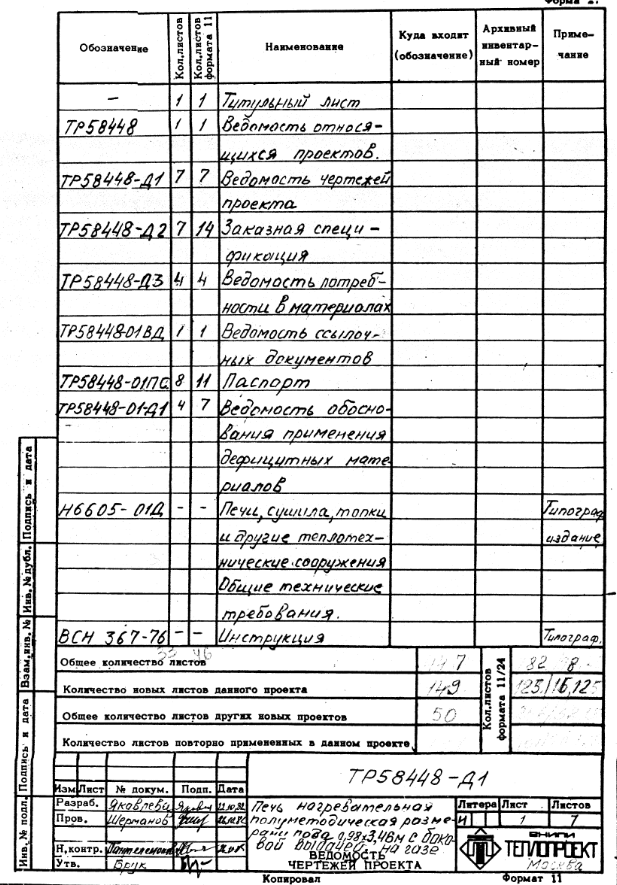 Форма 2.
Обозначение Кол.листов Кол.листов формата 11 Наименование Куда входит (обозначение) Архивный инвентар-ный номер Приме-чание
– 1 1 Титульный лист
ТР58448 1 1 Ведомость относя-
щихся проектов.
ТР58448-Д1 7 7 Ведомость чертежей
проекта
ТР58448-Д2 7 14 Заказная специ-
фикация
ТР58448-Д3 4 4 Ведомость потреб-
ности в материалах
ТР58448-01ВД 1 1 Ведомость ссылоч-
ных документов
ТР58448-01ПС 8 11 Паспорт
ТР58448-01-Д1 4 7 Ведомость обосно-
вания применения
дефицитных мате-
риалов
Н6605-01Д - - Печи, сушила, топки Типограф.
и другие теплотех- издание
нические сооружения
Общие технические
требования.
ВСН 367-76 - - Инструкция Типограф.
Общее количество листов
Количество новых листов данного проекта 149
Общее количество листов других новых проектов 50
Количество листов повторно примененных в данном проекте
Кол.листов формата 11/24
ТР58448-Д1
Изм Лист № докум. Подп. Дата
Разраб. Яковлева
Пров. Шерманов
Н,контр.
Утв. Брук
Печь нагревательная
полуметодическая разме-
рами пода 0,98×3,48м с боко-
вой выдачей, на газе
ВЕДОМОСТЬ
ЧЕРТЕЖЕЙ ПРОЕКТА
Литера Лист Листов
И 1 7
ВНИПИ
ТЕПЛОПРОЕКТ
Москва
Копировал Формат 11
Инв. № подл. Подпись и дата Взам.инв. № Инв. № дубл. Подпись и дата